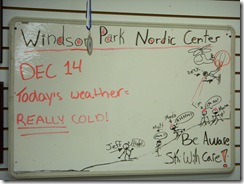 Windsor Park Nordic Center
DEC 14
Today's weather=
REALLY COLD!
Jeff
Be Aware
Ski With Care!